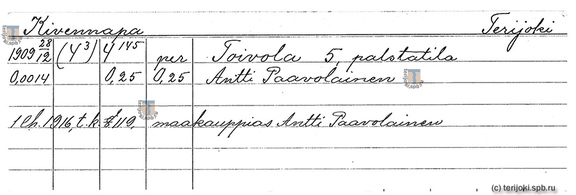 Kivennapa Terijoki
1909 28/12 (4³) 4¹⁴⁵ per Toivola 5, palstatila
0,0014 0,25 0,25 Antti Paavolainen
1916, t. k. 119, maakauppias Antti Paavolainen
(c) terijoki.spb.ru